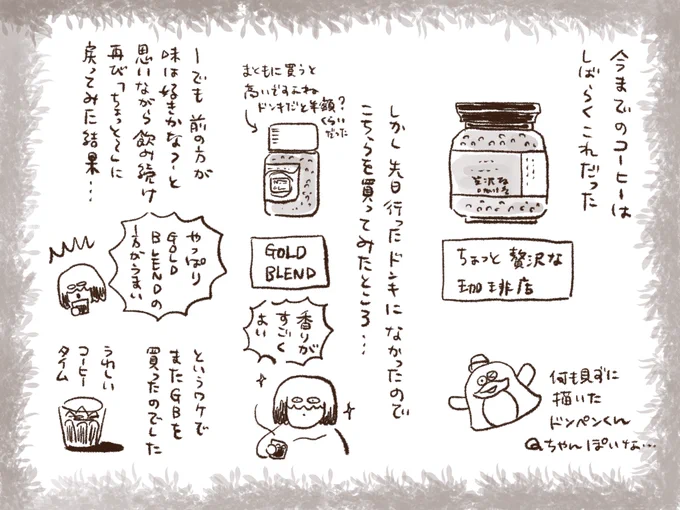 今までのコーヒーは
しばらくこれだった
贅沢な
ちょっと贅沢な
珈琲店
何も見ずに
描いた
ドンペンくん
Qちゃんぽいな…
しかし先日行ったドンキになかったので
こちらを買ってみたところ…
まともに買うと
高いですよね
ドンキだと半額？
くらい
だった
GOLD
BLEND
香りが
すごく
よい
ーでも前の方が
味は好きかなつーと
思いながら飲み続け
再び「ちょっと〜」に
戻ってみた結果…
やっぱり
GOLD
BLENDの
方がうまい
というワケで
またGBを
買ったのでした
うれしい
コーヒー
タイム